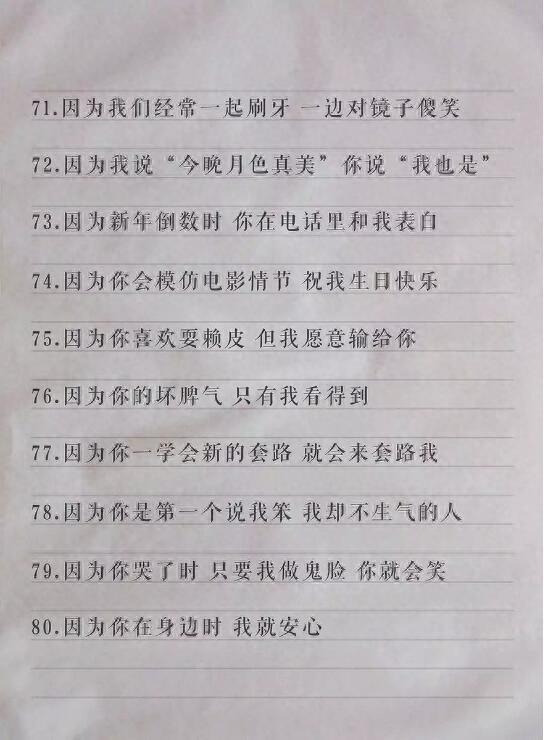 71.因为我们经常一起刷牙 一边对镜子傻笑
72.因为我说“今晚月色真美”你说“我也是”
73.因为新年倒数时 你在电话里和我表白
74.因为你会模仿电影情节 祝我生日快乐
75.因为你喜欢耍赖皮 但我愿意输给你
76.因为你的坏脾气 只有我看得到
77.因为你一学会新的套路 就会来套路我
78.因为你是第一个说我笨 我却不生气的人
79.因为你哭了时 只要我做鬼脸 你就会笑
80.因为你在身边时 我就安心